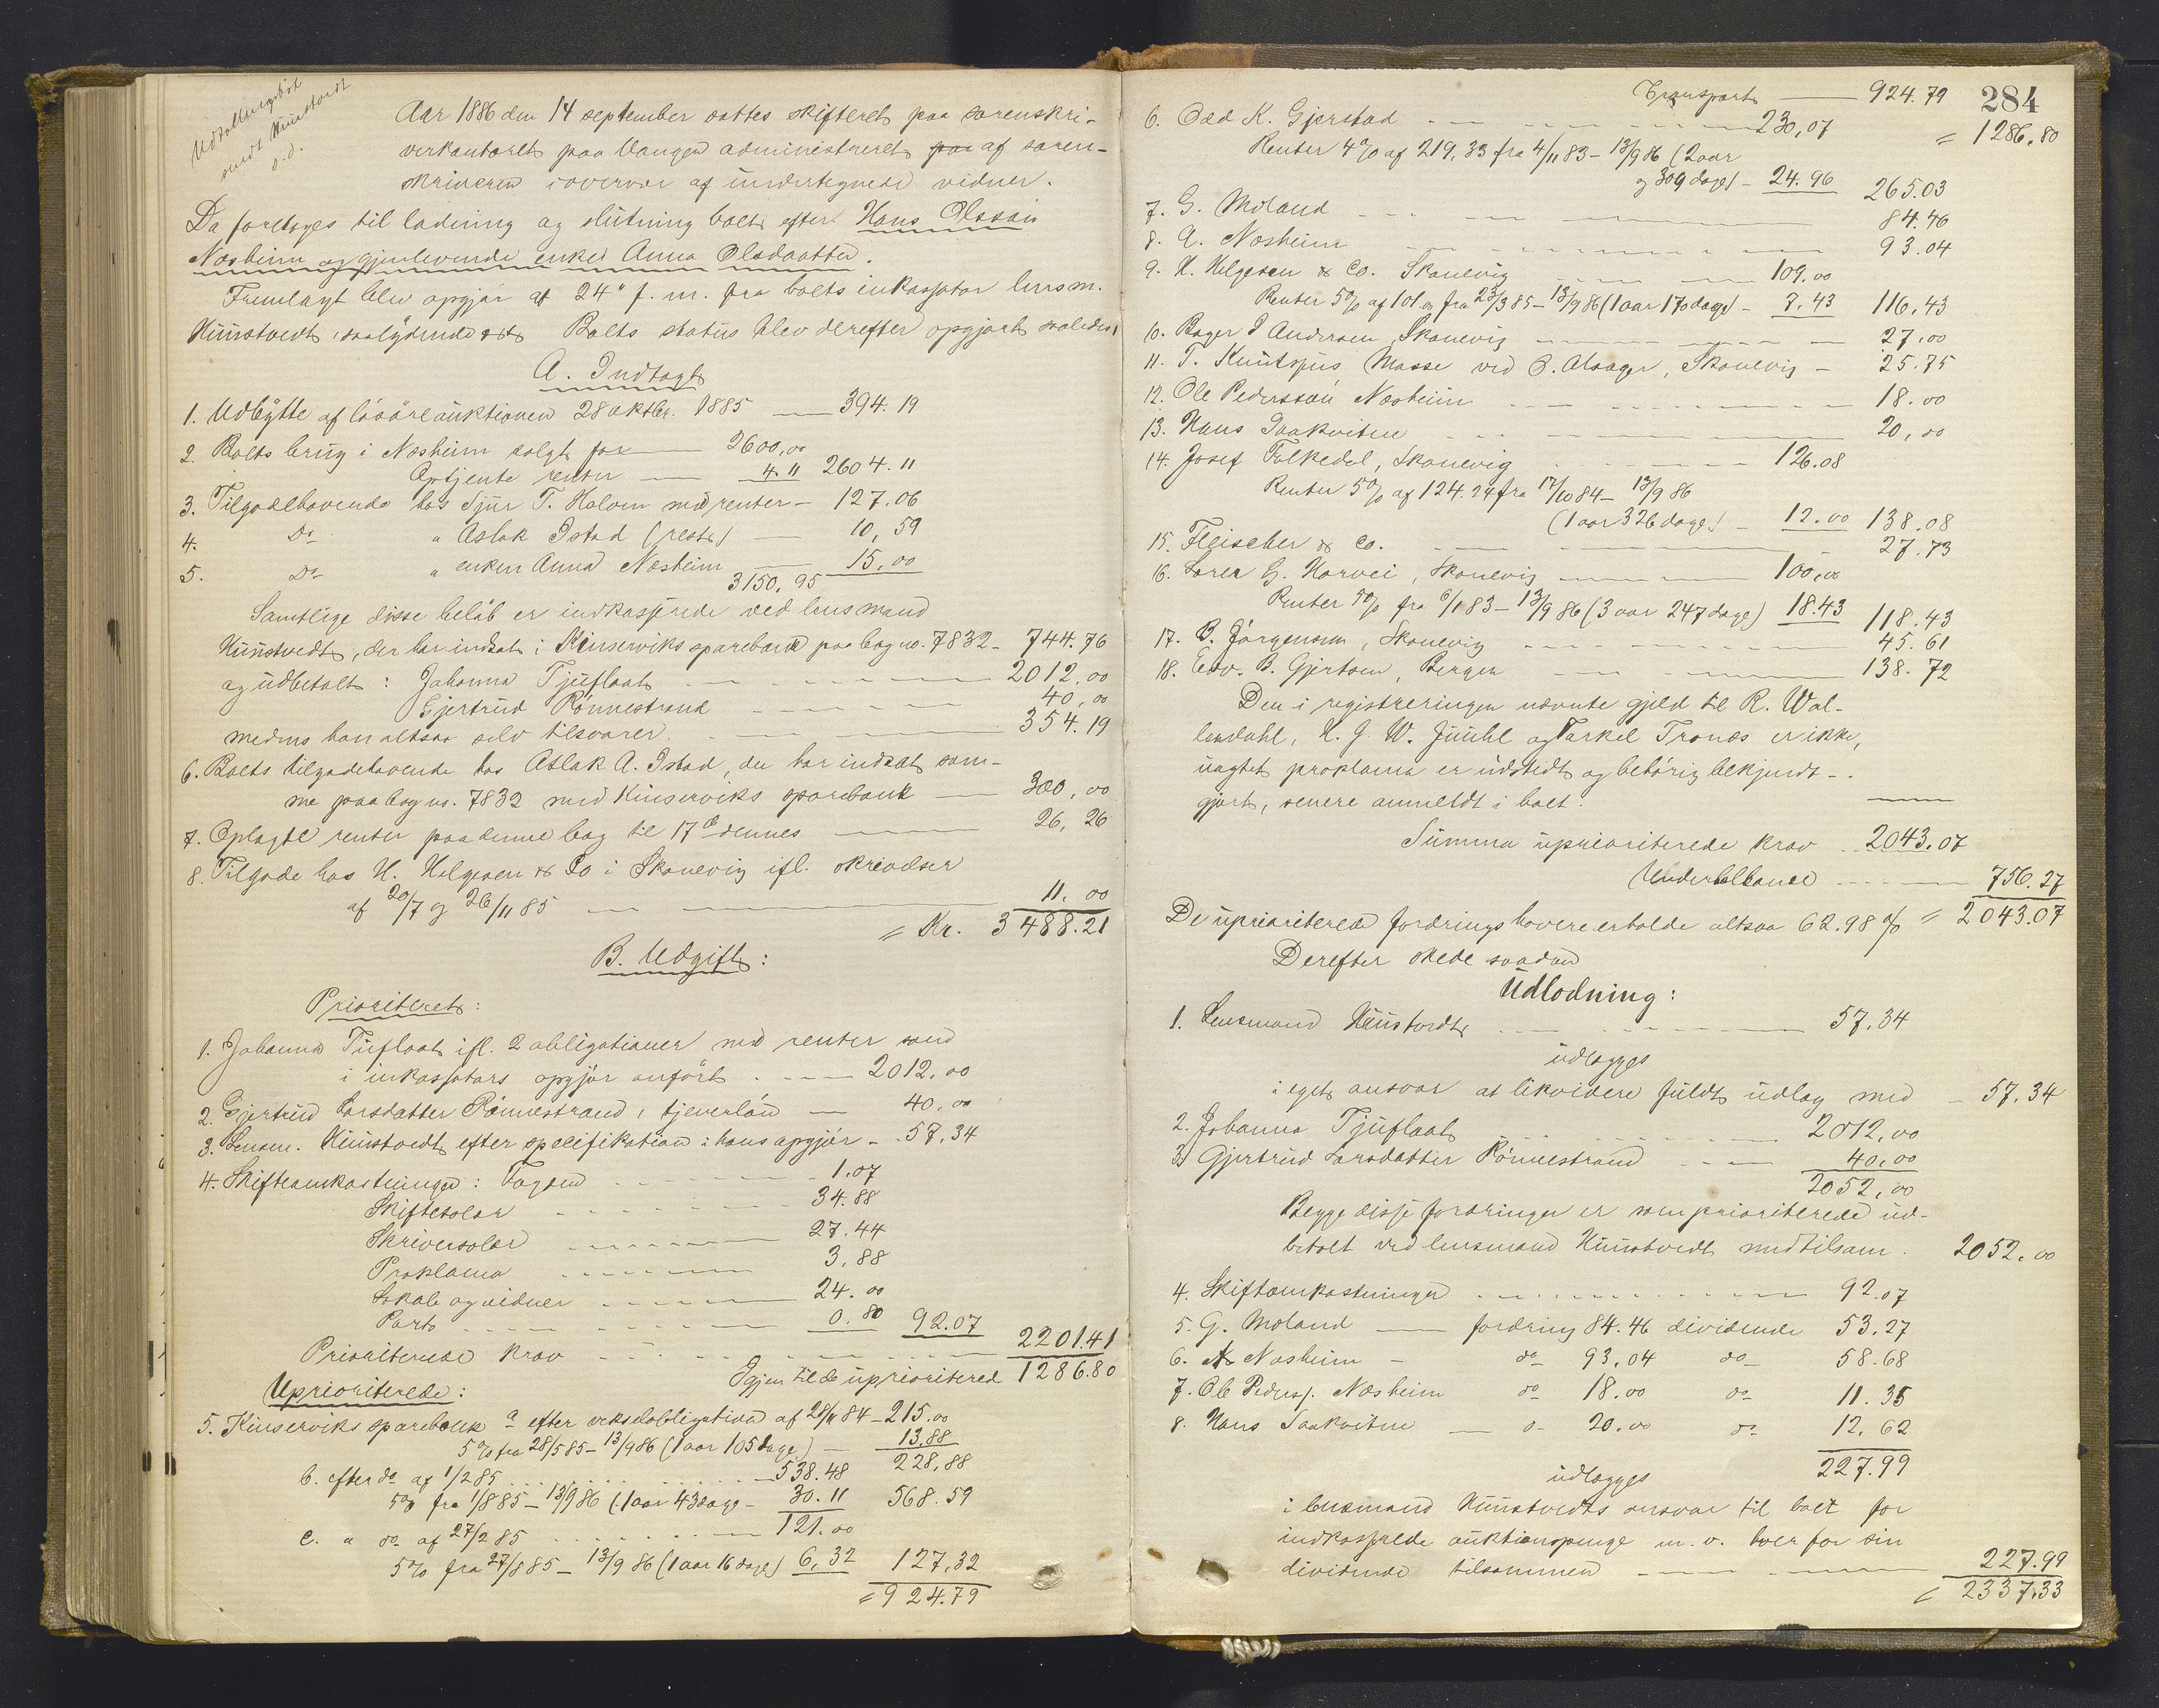 Udtællingsbil
sendt Kunstvedt
s.d.
Aar 1886 den 14 september sattes skifteret paa sorenskri-
verkontoret paa Vangen administreret paa af soren-
skriveren i overvær af undertegnede vidner.
Da foretoges til lodning og slutning boet efter Hans Olsson
Næsheim og gjenlevende enke Anna Olsdaatter.
Fremlagt blev opgjør af 24de f. m. fra boets inkassator lensm.
Kunstvedt, saalydende Boets status blev derefter opgjort saaledes:
A. Indtægt
1. Udbytte af løsøreauktionen 28 oktbr. 1885 — 394.19
2. Boets brug i Næsheim solgt for — 2600,00
Optjente renter — 4.11 2604.11
3. Tilgodehavende hos Sjur T. Halven med renter - 127.06
4. Do " Aslak Istad (rest) — 10,59
5. Do " enken Anna Næsheim — 15,00
3150,95
Samtlige disse beløb er indkasserede ved lensmand
Kunstvedt, der har indsat i Kinserviks sparebank paa bog no. 7832 - 744.76
og udbetalt: Johanna Tjuflaat — 2012,00
Gjertrud Rønnestrand — 40,00
medens han altsaa selv tilsvarer — 354.19
6. Boets tilgodehavende hos Aslak A. Istad, der har indsat sam-
me paa bog no. 7832 med Kinserviks sparebank — 300,00
7. Oplagte renter paa denne bog til 17de dennes — 26,26
8. Tilgode hos H. Helgesen & Co i Skonevig ifl. skrivelser
af 20/7 og 26/11 85 — 11.00
= Kr. 3488.21
B. Udgift:
Prioriteret:
1. Johanna Tjuflaat ifl. 2 obligationer med renter som
i inkassators opgjør anført . — 2012,00
2. Gjertrud Larsdatter Rønnestrand, tjenerløn — 40.00
3. Lensm. Kunstvedt efter specifikation i hans opgjør - 57,34
4. Skifteomkostninger: Fogden — 1.07
Skiftesalær — 34.88
Skriversalær — 27.44
Proklama — 3,88
Lokale og vidner — 24.00
Porto — 0.80 92.07
Prioriterede krav — 2201.41
Igjen til de uprioriterede 1286.80
Uprioriterede:
5. Kinserviks sparebank a efter vekselobligation af 28/11 84 - 215.00
5% fra 28/5 85 - 13/9 86 (1 aar 105 dage) — 13.88
228,88
b. efter do af 1/2 85 — 538.48
5% fra 1/8 85 - 13/9 86 (1 aar 43 dage - 30.11 568.59
c. " do af 27/2 85 — 121.00
5% fra 27/8 85 - 13/9 86 (1 aar 16 dage) 6,32 127,32
= 924.79
284
Transport — 924.79
= 1286.80
6. Odd K. Gjerstad — 230,07
Renter 4% af 219,33 fra 4/11 83 - 13/9 86 (2 aar
og 309 dage) - 24.96 265.03
7. G. Moland — 84.46
8. A. Næsheim — 93.04
9. H. Helgesen & Co. Skonevig — 109.00
Renter 5% af 101.00 fra 23/3 85 - 13/9 86 (1 aar 170 dage) - 7.43 116,43
10. Bager I Andersen, Skonevig — 27,00
11. T. Knutssøns Masse ved O. Alsager, Skonevig — 25.75
12. Ole Pedersson Næsheim — 18.00
13. Hans Saakvitne — 20,00
14. Josef Falkedal, Skonevig — 126.08
Renter 5% af 124.24 fra 17/10 84 - 13/9 86
(1 aar 326 dage) - 12.00 138.08
15. Fleischer & Co. — 27.73
16. Sorer G. Harvei, Skonevig — 100,00
Renter 5% fra 6/1 83 - 13/9 86 (3 aar 247 dage) 18.43 118.43
17. B. Jørgensen, Skonevig — 45.61
18. Edv. B. Gjertsen, Bergen — 138.72
Den i registreringen nævnte gjeld til R. Wal-
lendahl, H. J. W. Juuhl og Tarkel Tronæs er ikke,
uagtet proklama er udstedt og behørig bekjendt-
gjort, senere anmeldt i boet.
Summa uprioriterede krav 2043.07
Underballance — 756.27
De uprioriterede fordringshavere erholde altsaa 62.98% = 2043.07
Derefter skede saadan
Udlodning:
1. Lensmand Kunstvedt — 57.34
udlægges
i eget ansvar at likvidere fuldt udlæg med — 57,34
2. Johanna Tjuflaat — 2012,00
3. Gjertrud Larsdatter Rønnestrand — 40.00
2052,00
Begge disse fordringer er som prioriterede ud-
betalt ved lensmand Kunstvedt med tilsam. 2052.00
4. Skifteomkostninger — 92.07
5. G. Moland — fordring 84.46 dividende 53.27
6. A. Næsheim - do 93,04 do 58.68
7. Ole Peders. Næsheim do 18.00 do 11.35
8. Hans Saakvitne — do 20.00 do 12,62
227.99
udlægges
i lensmand Kunstvedts ansvar til boet for
indkasserede auktionspenge m. v. hver for sin
dividende tilsammen — 227.99
= 2337.33